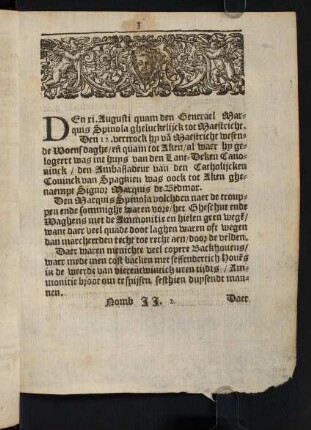 3
DEn xi. Augusti quam den Generael Mar-
quis Spinola gheluckelijck tot Maestricht.
Den 12. vertrock hy vā Maestricht wesen-
de Woensdaghe/ eñ quam tot Aken/ al waer hy ge-
logeert was int huys van den Lant-Deken Cano-
ninck / den Ambassadeur van den Catholijcken
Coninck van Spagnien was oock tot Aken ghe-
naempt Signor Marquis de Bedmar.
Den Marquis Spinola volchden naer de troup-
pen ende sommighe waren vore/ het Gheschut ende
Waghens met de Ammonitie en hielen geen wegē/
want daer veel quade door laghen waren oft wegen
dan marcheerden recht toe recht aen/ door de velden.
Daer waren menichte veel copere Backhovens/
waer mede men cost backen met seffenderrich
in de weerde van vierentwintich uren tijdts/ Am-
monitie broot om te spijsen sesthien duysendt man-
nen.
Nomb II. 2. Daer